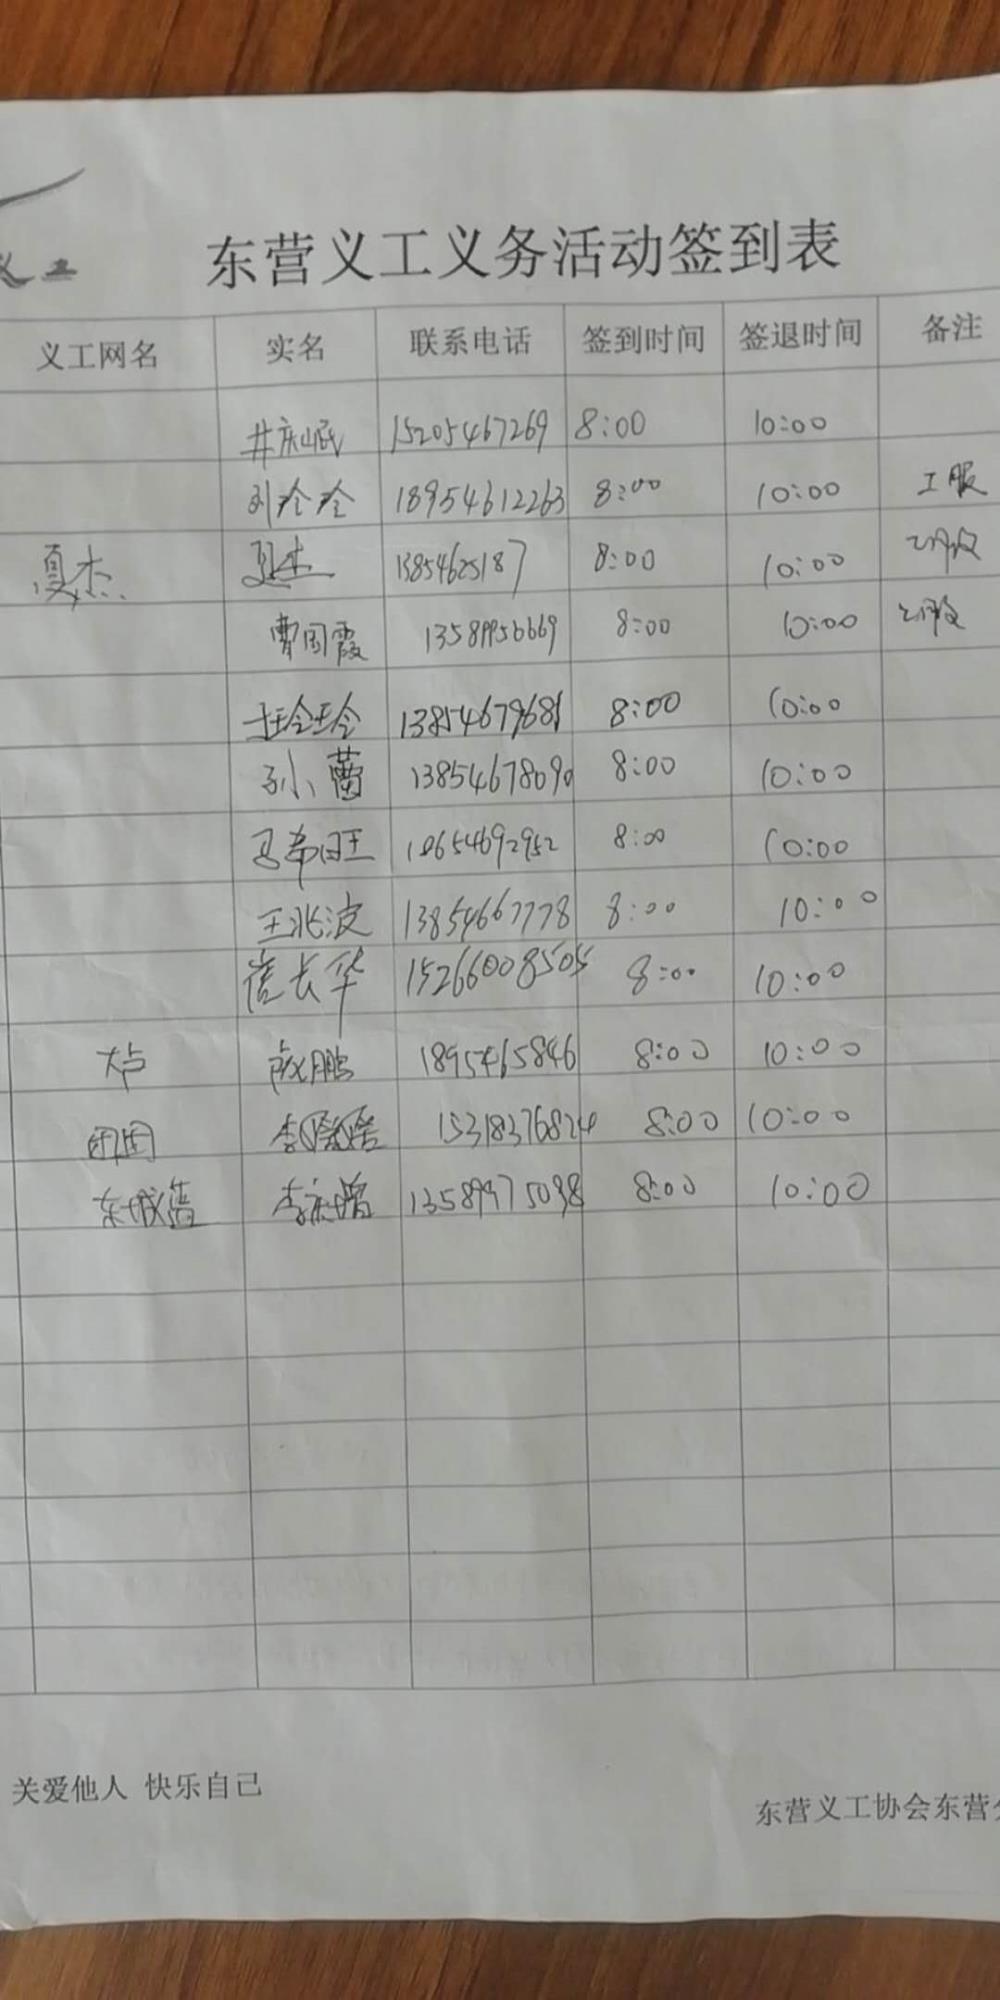 义工
东营义工义务活动签到表
义工网名 实名 联系电话 签到时间 签退时间 备注
井庆岷 15205467269 8:00 10:00
刘玲玲 18954612263 8:00 10:00 工服
夏杰 夏杰 13854625187 8:00 10:00 工服
曹国霞 13589956669 8:00 10:00 工服
王玲玲 13854679681 8:00 10:00
孙小蕾 13854678090 8:00 10:00
马希旺 8:00 10:00
王兆波 13854667778 8:00 10:00
崔长华 15266008505 8:00 10:00
大卢 鹏 1895465846 8:00 10:00
团团 李 15318376824 8:00 10:00
东城蓝 李 13589975098 8:00 10:00
关爱他人 快乐自己
东营义工协会东营分